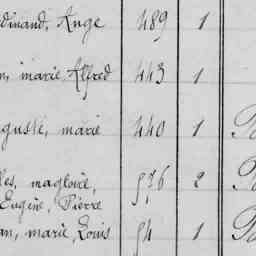 dinand, Ange 489 1
n, marie, Alfred 443 1
guste, marie 440 1
les, magloire, 576 2
Eugène, Pierre
an, marie, Louis 54 1